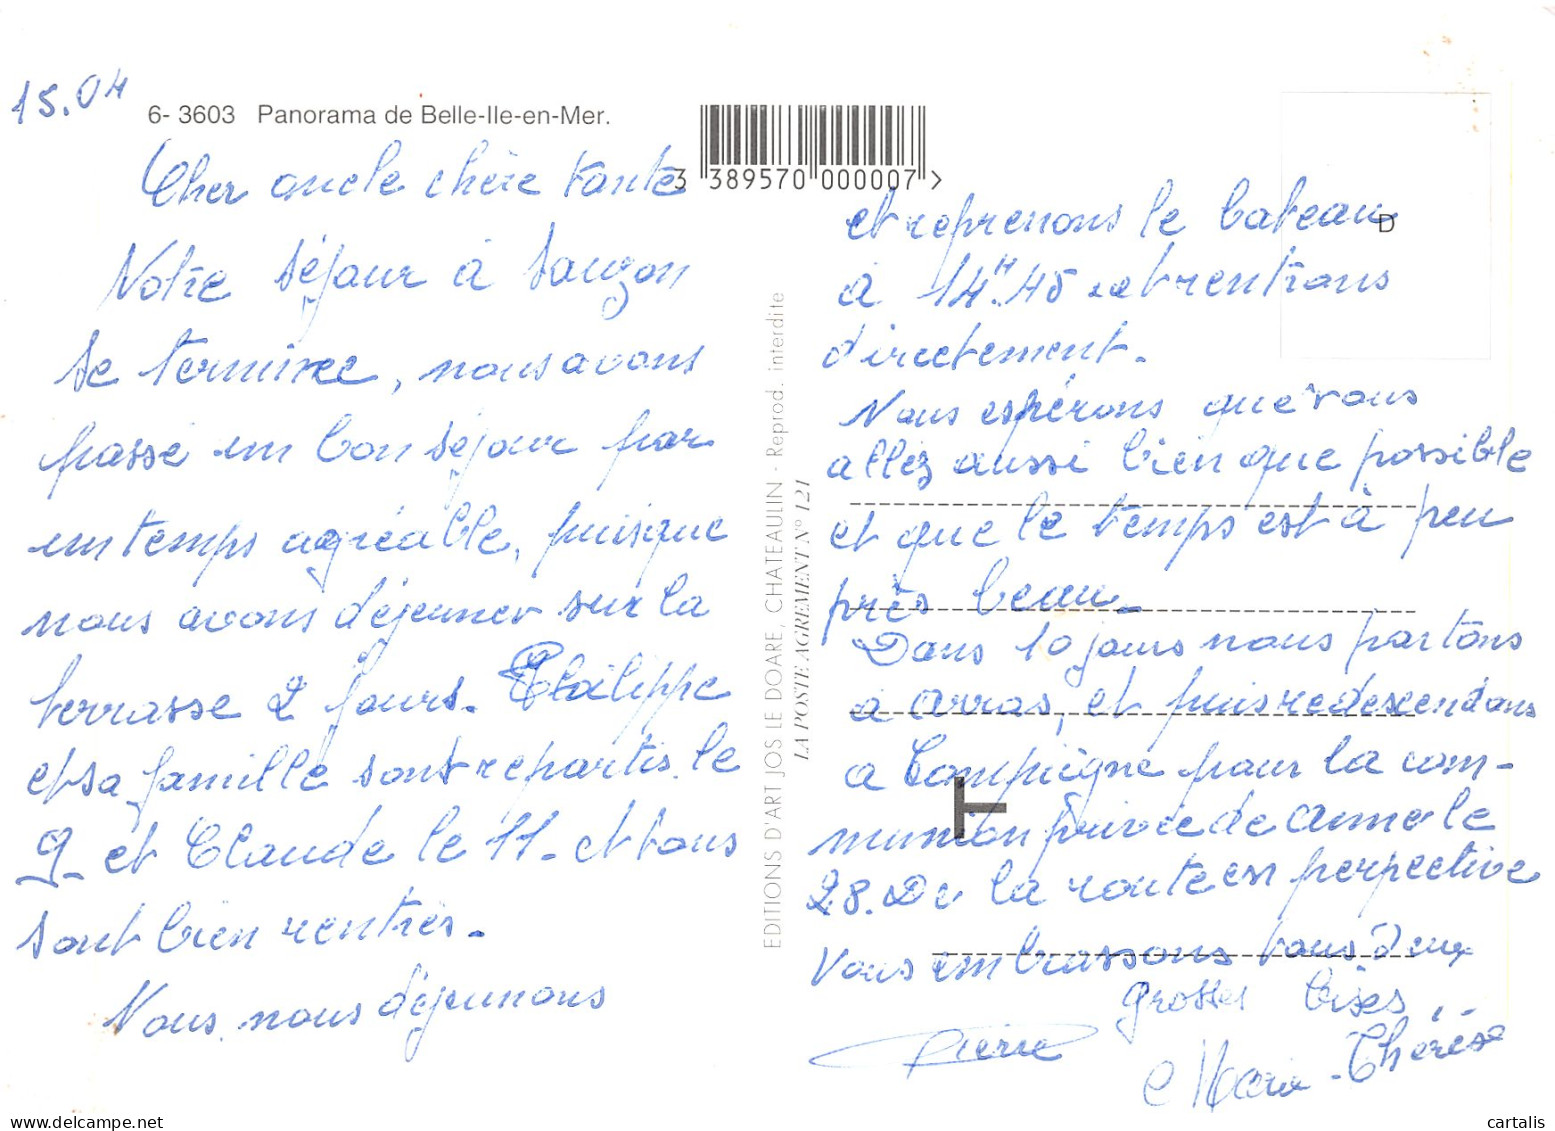 15.04
6- 3603 Panorama de Belle-Ile-en-Mer.
3 389570 000007 >
Cher oncle chère tante
Notre séjour à Sauzon
se termine, nous avons
passé un bon séjour par
un temps agréable, puisque
nous avons déjeuner sur la
terrasse 2 jours. Philippe
et sa famille sont repartis le
9 - et Claude le 11 - et tous
sont bien rentrés.
Nous, nous déjeunons
EDITIONS D'ART JOS LE DOARE, CHATEAULIN - Reprod. interdite
LA POSTE AGREMENT N° 121
D
et reprenons le bateau
à 14H.45 et rentrons
directement.
Nous espérons que vous
allez aussi bien que possible
et que le temps est à peu
près beau.
Dans 10 jours nous partons
à Arras, et puis redescendons
a Compiègne pour la com-
munion privée de Anne le
28. De la route en perpective
T
Vous embrassons tous deux
grosses bises,
Pierre
Marie-Thérèse
cartalis